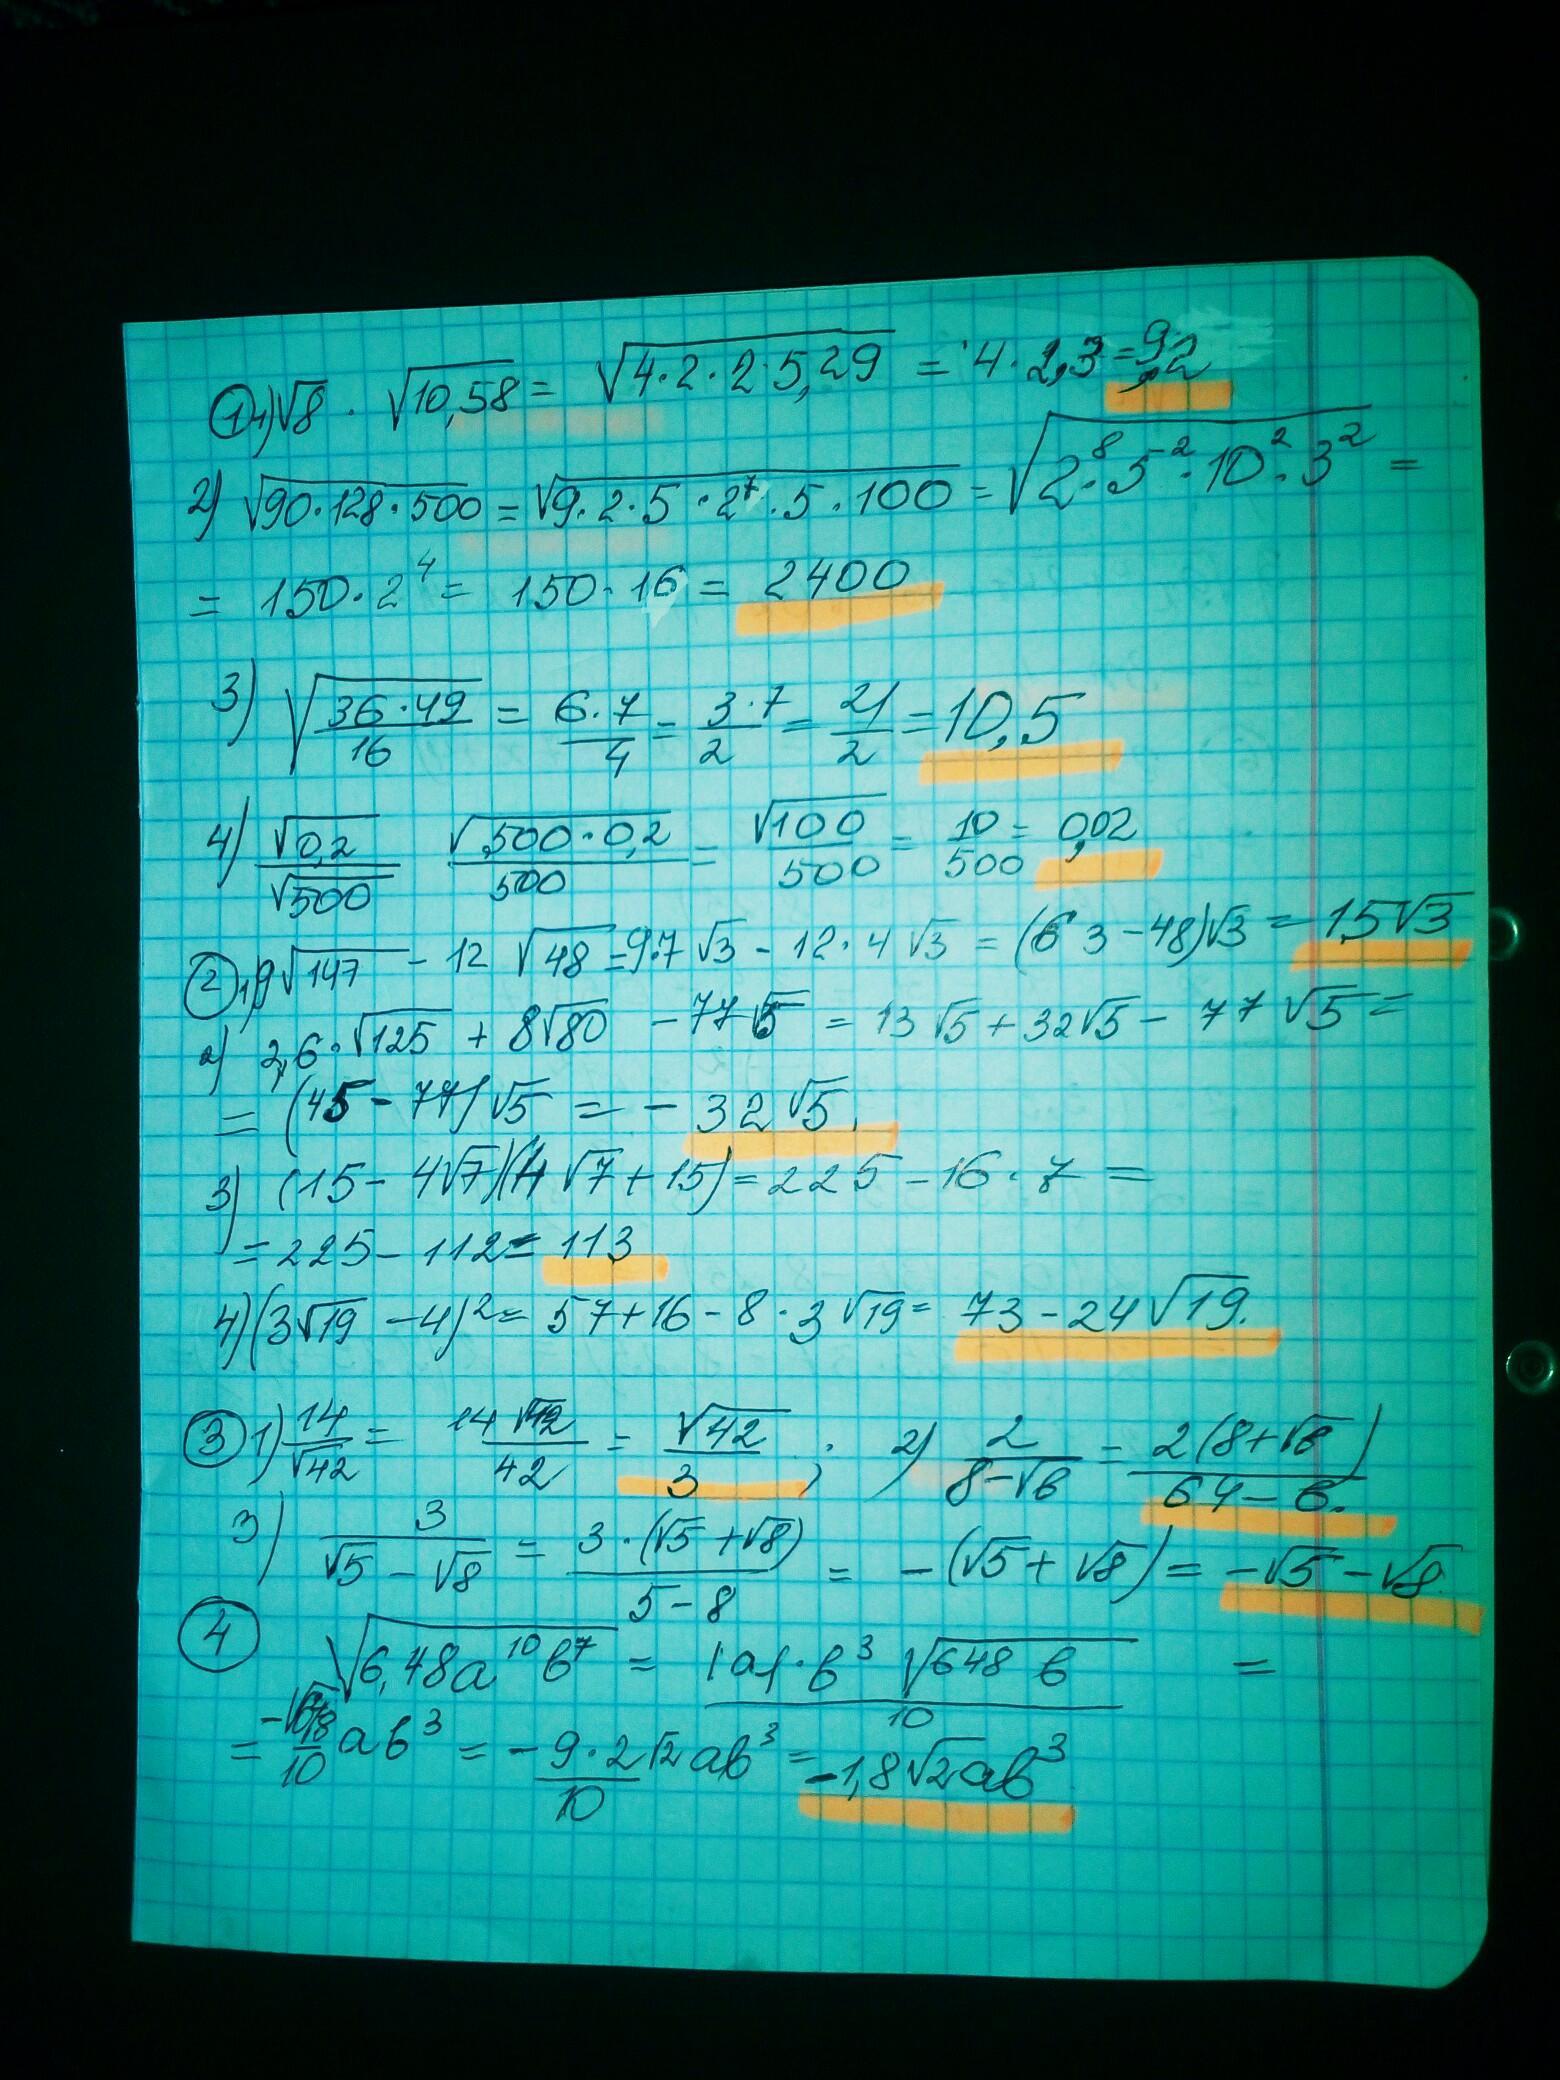 ① 1) √8 · √10,58 = √4·2·2·5,29 = 4·2,3 = 9,2
2) √90·128·500 = √9·2·5·2⁷·5·100 = √2⁸·5²·10²·3² =
= 150·2⁴ = 150·16 = 2400
3) √(36·49/16) = 6·7/4 = 3·7/2 = 21/2 = 10,5
4) √0,2/√500 √500·0,2/500 = √100/500 = 10/500 = 0,02
② 1) 9√147 - 12√48 = 9·7√3 - 12·4√3 = (63-48)√3 = 15√3
2) 2,6·√125 + 8√80 - 77√5 = 13√5 + 32√5 - 77√5 =
= (45-77)√5 = -32√5.
3) (15-4√7)(4√7+15) = 225-16·7 =
= 225-112 = 113
4) (3√19-4)² = 57+16-8·3√19 = 73-24√19.
③ 1) 14/√42 = 14√42/42 = √42/3 ; 2) 2/(8-√в) = 2(8+√в)/(64-в).
3) 3/(√5-√8) = 3·(√5+√8)/(5-8) = -(√5+√8) = -√5-√8.
④ √6,48a¹⁰в⁷ = |a|·в³√648в/10 =
= -√648/10 aв³ = -9·2√2/10 aв³ = -1,8√2aв³